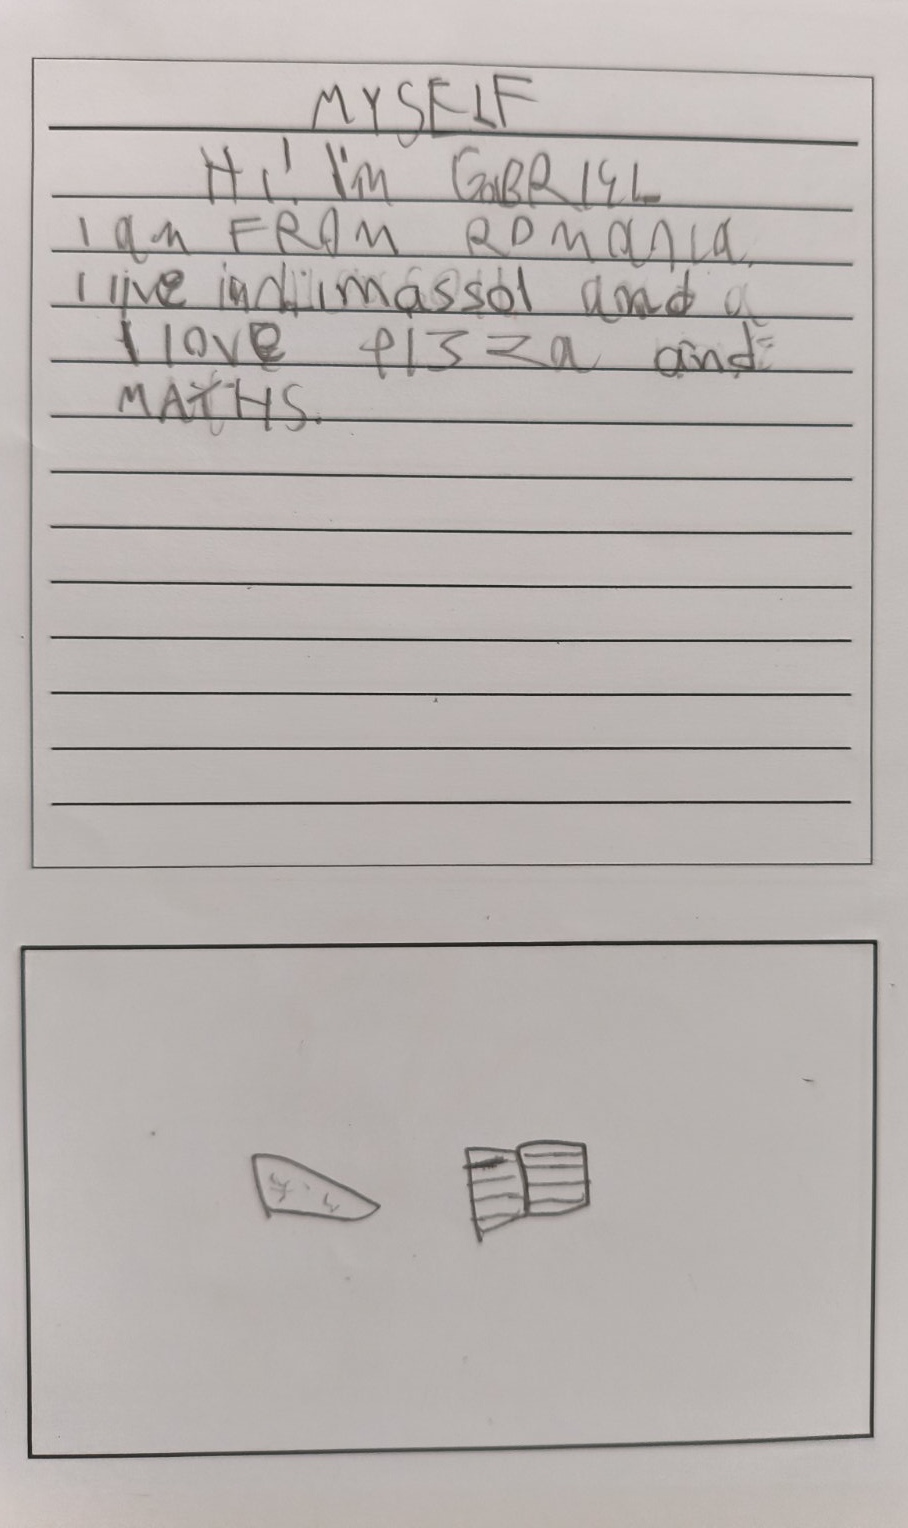 MYSELF
Hi! I'm GaBRIYL
I am FROM ROmaNIa.
I live in Limassol and a
I love PIZZa and
MATHS.